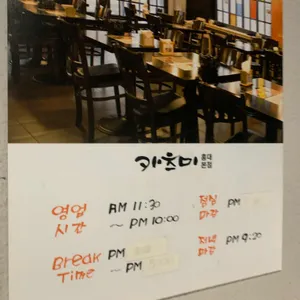 카츠미 홍대
본점
영업 AM 11:30
시간 ~ PM 10:00
점심 PM
마감
Break PM
Time ~ PM
저녁 PM 9:20
마감